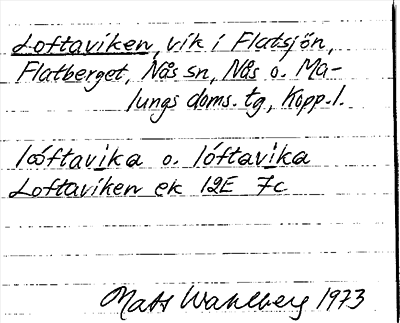 Loftaviken, vik i Flatsjön,
Flatberget, Nås sn, Nås o. Ma-
lungs doms. tg, Kopp. l.
lóftavika o. lóftavika
Loftaviken ek 12E 7c
Mats Wahlberg 1973